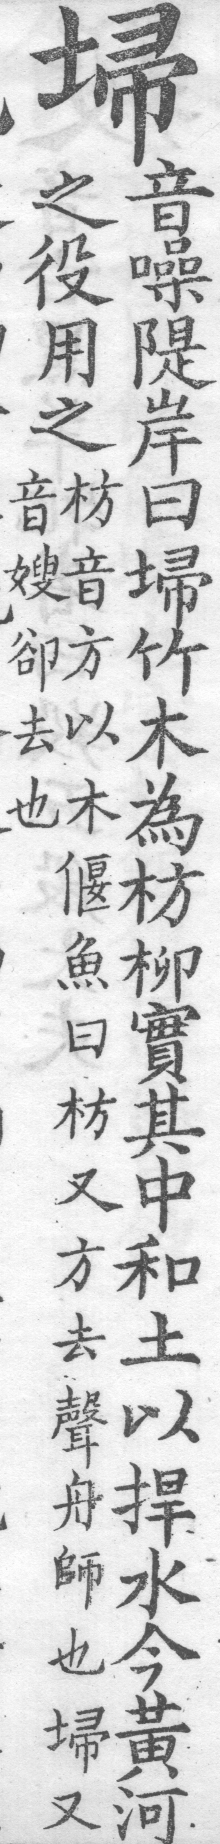 埽
音噪隄岸曰埽竹木為枋柳實其中和土以捍水今黃河
之役用之
枋音方以木偃魚曰枋又方去聲舟師也埽又
音嫂卻去也